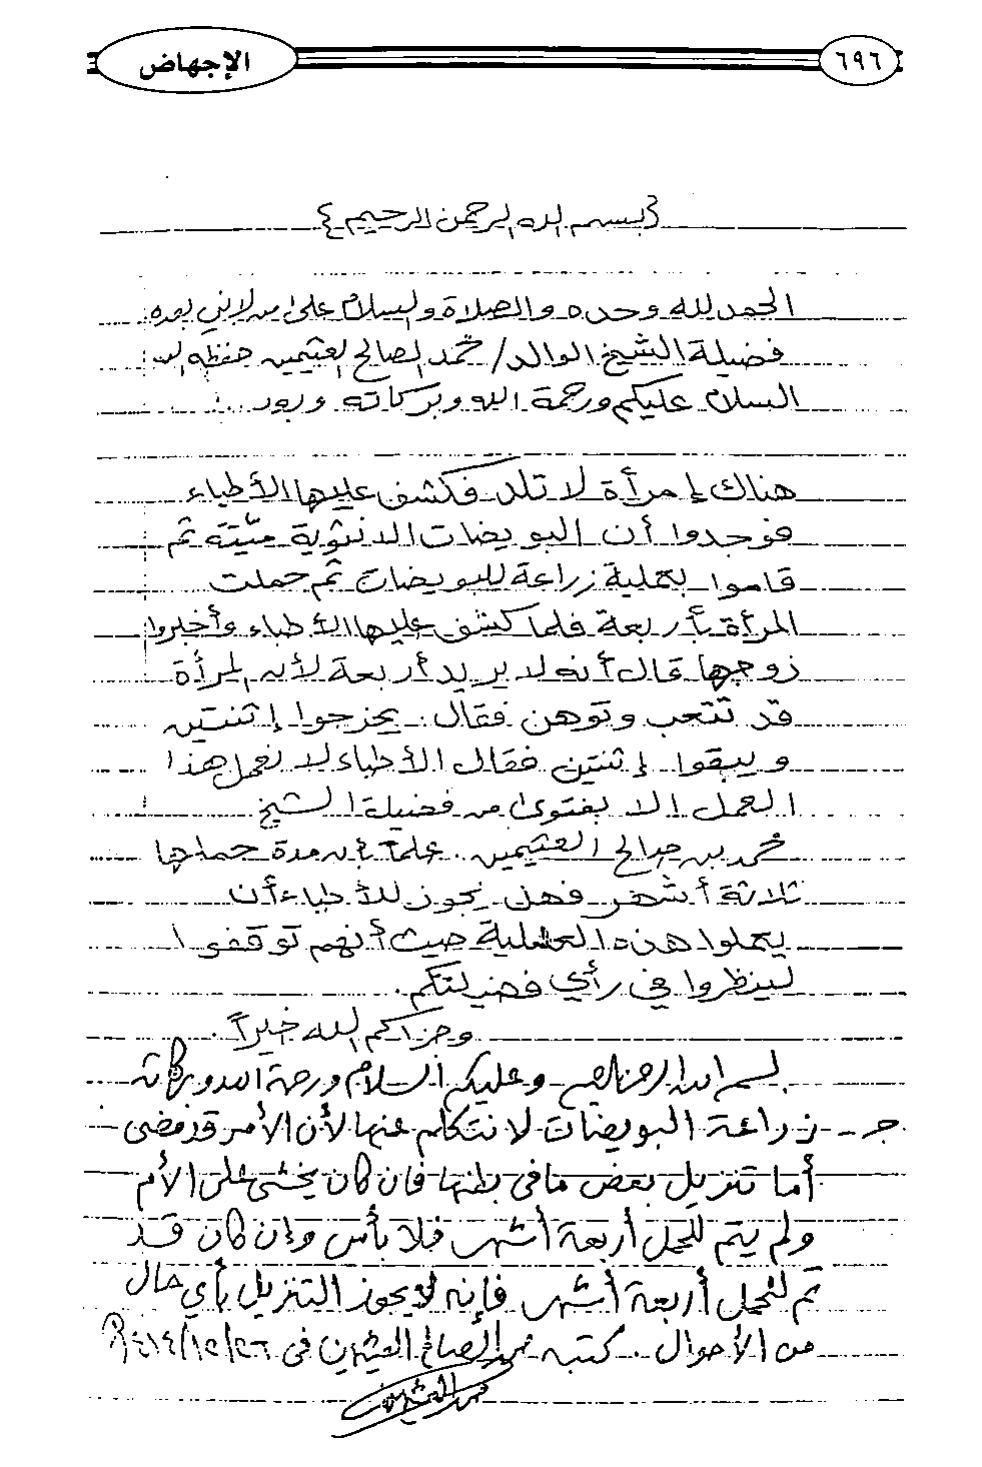 ٦٩٦
الإجهاض
{بسم الله الرحمن الرحيم}
الحمد لله وحده والصلاة والسلام على من لا نبي بعده
فضيلة الشيخ الوالد/ محمد الصالح العثيمين حفظه الله
السلام عليكم ورحمة الله وبركاته وبعد..
هناك إمرأة لا تلد فكشف عليها الأطباء
فوجدوا أن البويضات الانثوية ميّتة ثم
قاموا بعملية زراعة للبويضات ثم حملت
المرأة بأربعة فلما كشف عليها الأطباء وأخبروا
زوجها قال أنه لا يريد أربعة لأن المرأة
قد تتعب وتوهن فقال. يخرجوا إثنتين
ويبقوا إثنتين فقال الأطباء لا نعمل هذا
العمل إلا بفتوى من فضيلة الشيخ
محمد بن صالح العثيمين.. علماً بأن مدة حملها
ثلاثة أشهر فهل يجوز للأطباء أن
يعملوا هذه العملية حيث أنهم توقفوا
لينظروا في رأي فضيلتكم.
وجزاكم الله خيراً.
بسم الله الرحمن الرحيم وعليكم السلام ورحمة الله وبركاته
جـ - زراعة البويضات لا نتكلم عنها لأن الأمر قد مضى
أما تنزيل بعض ما في بطنها فإن كان يخشى على الأم
ولم يتم للحمل أربعة أشهر فلا بأس وإن كان قد
تم للحمل أربعة أشهر فإنه لا يجوز التنزيل بأي حال
من الأحوال. كتبه محمد الصالح العثيمين في
محمد العثيمين